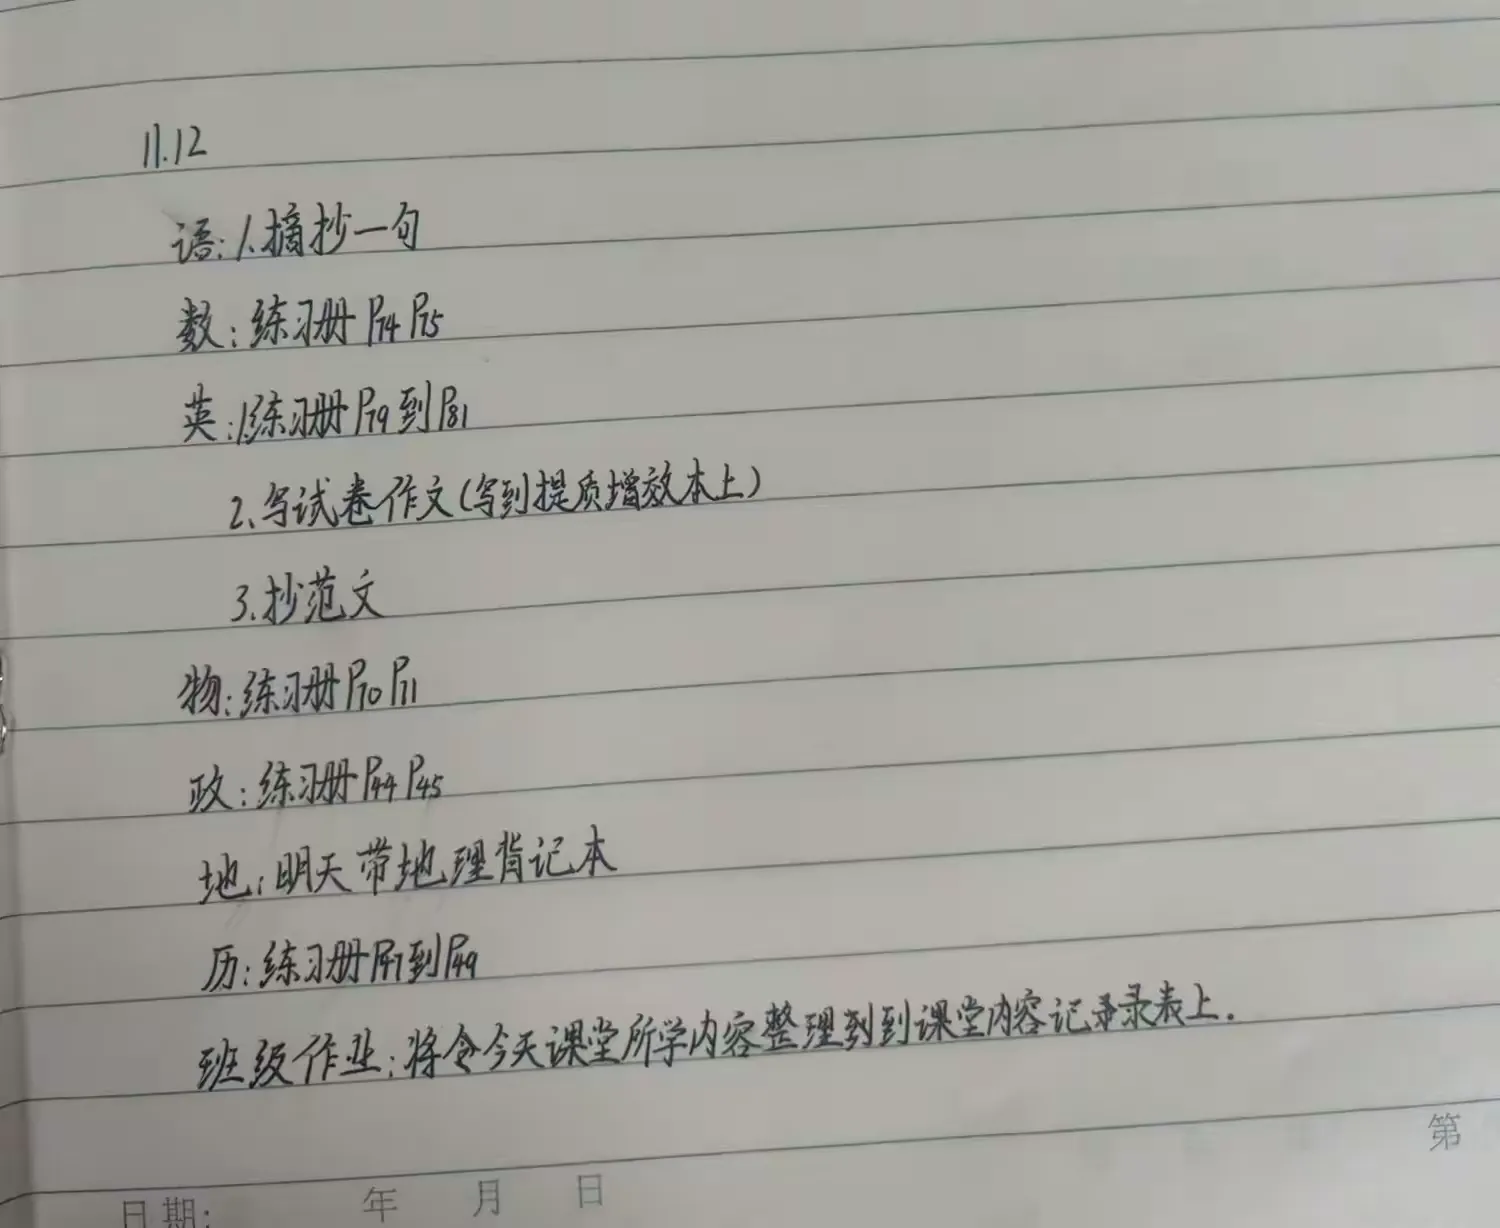 11.12
语:1.摘抄一句
数:练习册P74P75
英:1.练习册P79到P81
2.写试卷作文(写到提质增效本上)
3.抄范文
物:练习册P70P71
政:练习册P44P45
地:明天带地理背记本
历:练习册P47到P49
班级作业:将今天课堂所学内容整理到到课堂内容记录表上.
第
日期: 年 月 日